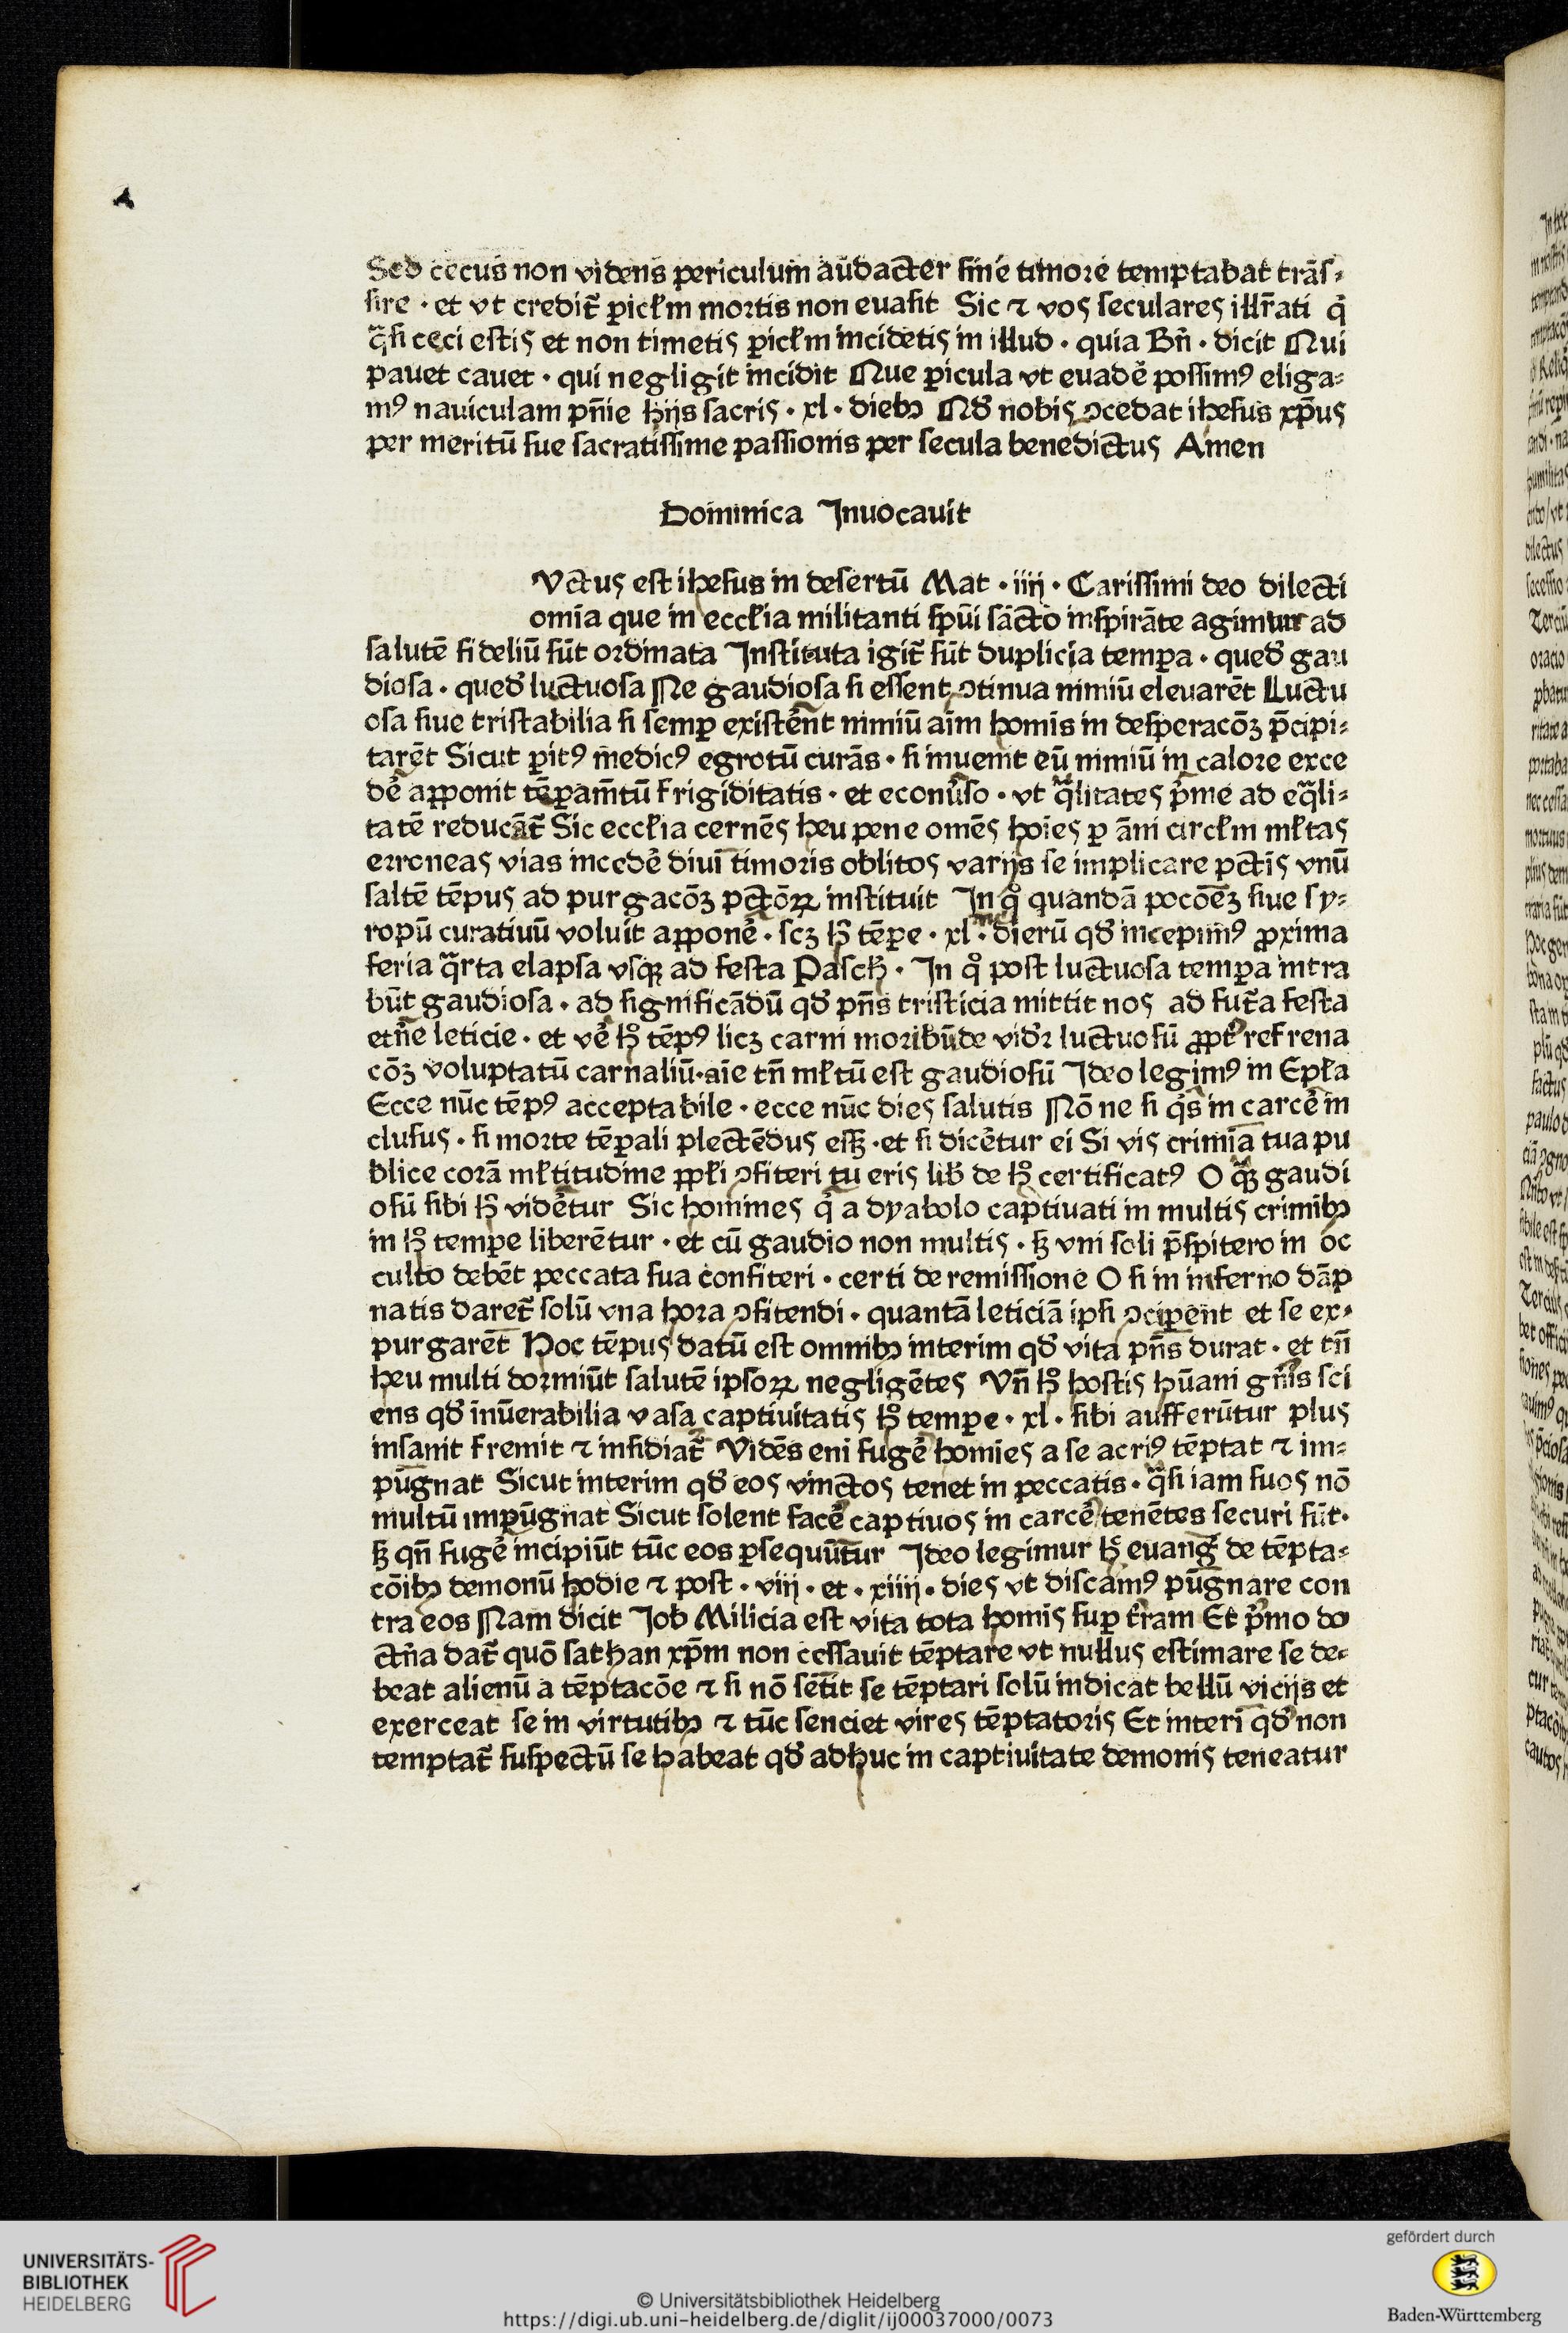 Sed cecus non videns periculum audacter sine timore temptabat trās⸗
sire · et vt credit̄ ꝑicl̄m mortis non euasit Sic ⁊ vos seculares illr̄ati qͥ
qᷓsi ceci estis et non timetis ꝑicl̄m incidetis in illud · quia Bn̄ · dicit Qui
pauet cauet · qui negligit incidit Que ꝑicula vt euadē possimꝰ eliga⸗
mꝰ nauiculam pn̄ie hijs sacris · xl · diebꝫ Qd̄ nobis ꝯcedat ihesus xp̄us
per meritū sue sacratissime passionis per secula benedictus Amen
Dominica Inuocauit
Vctus est ihesus in desertū Mat · iiij · Carissimi deo dilecti
om̄ia que in eccl̄ia militanti sp̄ui sācto inspirāte agimur ad
salutē fideliū sūt ordinata Instituta igit̄ sūt duplicia temꝑa · qued̄ gau
diosa · qued̄ luctuosa Ne gaudiosa si essent ꝯtinua nimiū eleuarēt Luctu
osa siue tristabilia si semꝑ existēnt nimiū aīm homis in desperacōꝫ p̄cipi⸗
tarēt Sicut ꝑitꝰ medicꝰ egrotū curās · si inuenit eū nimiū in calore exce
dē apponit tēꝑam̄tū frigiditatis · et econuͦso · vt qᷓlitates pͥme ad eqᷓli⸗
tatē reducāt̄ Sic eccl̄ia cernēs heu pene omēs hoīes ꝑ āni circl̄m ml̄tas
erroneas vias incedē diuī timoris oblitos varijs se implicare pctīs vnū
saltē tēpus ad purgacōꝫ pctōꝝ instituit In qͦ quandā pocōeꝫ siue sy⸗
ropū curatiuū voluit apponē · scꝫ hͦ tēꝑe · xl · dierū qd̄ incepimꝰ ꝓxima
feria qᷓrta elapsa vsqꝫ ad festa Pasch̄ · In qͦ post luctuosa temꝑa intra
būt gaudiosa · ad significādū qd̄ pn̄s tristicia mittit nos ad fut̄a festa
etn̄e leticie · et vē hͦ tēpꝰ licꝫ carni moribūde vid̄r luctuosū ꝓpt̄ refrena
cōꝫ voluptatū carnaliū·aīe tn̄ ml̄tū est gaudiosū Ideo legimꝰ in Epl̄a
Ecce nūc tēpꝰ acceptabile · ecce nūc dies salutis Nōne si qͥs in carcē in
clusus · si morte tēꝑali plectēdus essꝫ · et si dicētur ei Si vis crimīa tua pu
blice corā ml̄titudine ppl̄i ꝯfiteri tu eris lib̄ de hͦ certificatꝰ O qᷓꝫ gaudi
osū sibi hͦ vidētur Sic homines qͥ a dyabolo captiuati in multis crimibꝫ
in hͦ temꝑe liberētur · et cū gaudio non multis · sꝫ vni soli p̄spitero in oc
culto debēt peccata sua confiteri · certi de remissione O si in inferno dāp
natis daret̄ solū vna hora ꝯfitendi · quantā leticiā ipsi ꝯciꝑent et se ex⸗
purgarēt Hoc tēpus datū est omnibꝫ interim qd̄ vita pn̄s durat · et tn̄
heu multi dormiūt salutē ipsoꝝ negligētes Vn̄ hͦ hostis hūani gn̄is sci
ens qd̄ inūerabilia vasa captiuitatis hͦ temꝑe · xl · sibi aufferūtur plus
insanit fremit ⁊ insidiat̄ Vidēs eni fugē homies a se acriꝰ tēptat ⁊ im⸗
pūgnat Sicut interim qd̄ eos vinctos tenet in peccatis · qᷓsi iam suos nō
multū impūgnat Sicut solent facē captiuos in carcē tenētes securi sūt·
sꝫ qn̄ fugē incipiūt tūc eos ꝑsequūtur Ideo legimur hͦ euanḡ de tēpta⸗
cōibꝫ demonū hodie ⁊ post · viij · et · xiiij · dies vt discamꝰ pūgnare con
tra eos Nam dicit Job Milicia est vita tota homis suꝑ t̄ram Et pͥmo do
ctn̄a dat̄ quō sathan xp̄m non cessauit tēptare vt nullus estimare se de⸗
beat alienū a tēptacōe ⁊ si nō sētit se tēptari solū indicat bellū vicijs et
exerceat se in virtutibꝫ ⁊ tūc senciet vires tēptatoris Et interī qd̄ non
temptat̄ suspectū se habeat qd̄ adhuc in captiuitate demonis teneatur
UNIVERSITÄTS-
BIBLIOTHEK
HEIDELBERG
© Universitätsbibliothek Heidelberg
https://digi.ub.uni-heidelberg.de/diglit/ij00037000/0073
gefördert durch
Baden-Württemberg